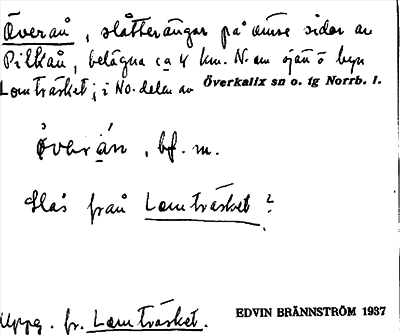 Överån, slåtterängar på ömse sidor av
Pilkån, belägna ca 4 km. N. om sjön o byn
Lomträsket; i No. delen av Överkalix sn o. tg Norrb. l.
överån, bf. m.
Slås från Lomträsket?
Uppg. fr. Lomträsket.
EDVIN BRÄNNSTRÖM 1937